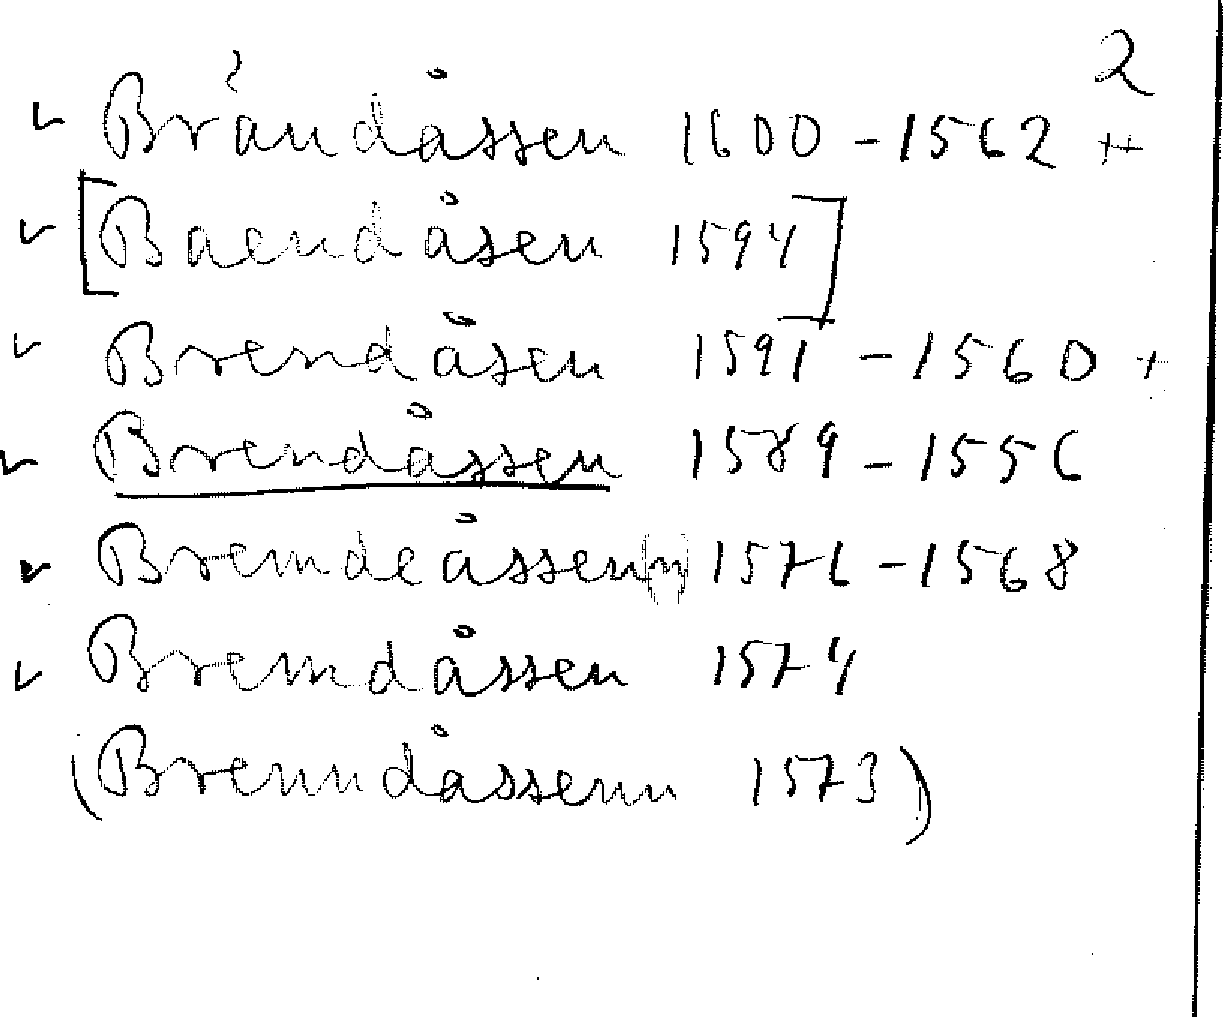 2
✓ Brändåssen 1600 - 1562 ++
✓ [Baendåsen 1594]
✓ Brendåsen 1591 - 1560 +
✓ Brendåssen 1589 - 1556
✓ Bremdeåssen(n) 1576 - 1568
✓ Bremdåssen 1574
(Brenndåssenn 1573)